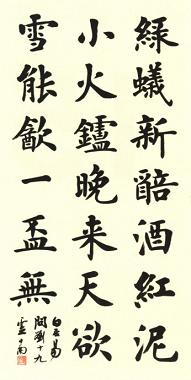 綠蟻新醅酒紅泥
小火鑪晚来天欲
雪能㱃一盃無
白居易
問劉十九
盧中南